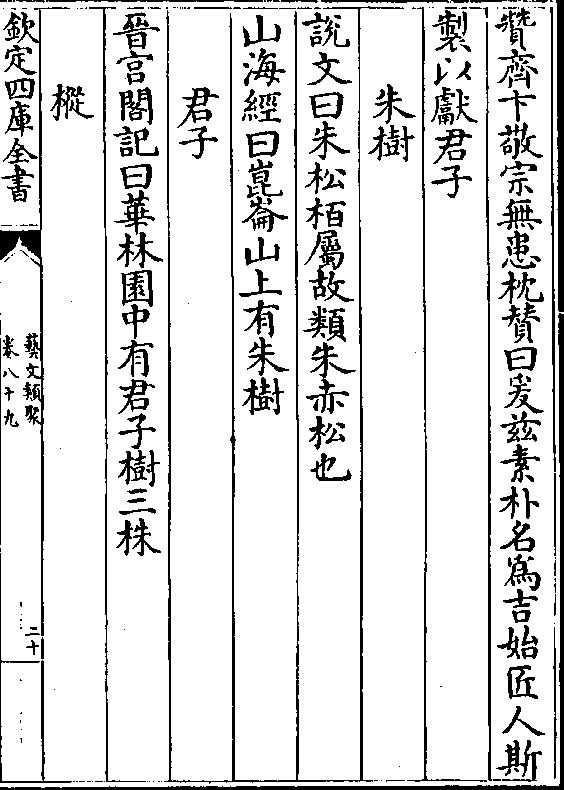 贊齊卞敬宗無患枕贊曰爰茲素朴名爲吉始匠人斯
製以獻君子
朱樹
說文曰朱松栢屬故類朱赤松也
山海經曰崑崙山上有朱樹
君子
晉宫閣記曰華林園中有君子樹三株
樅
欽定四庫全書
藝文類聚
卷八十九
二十